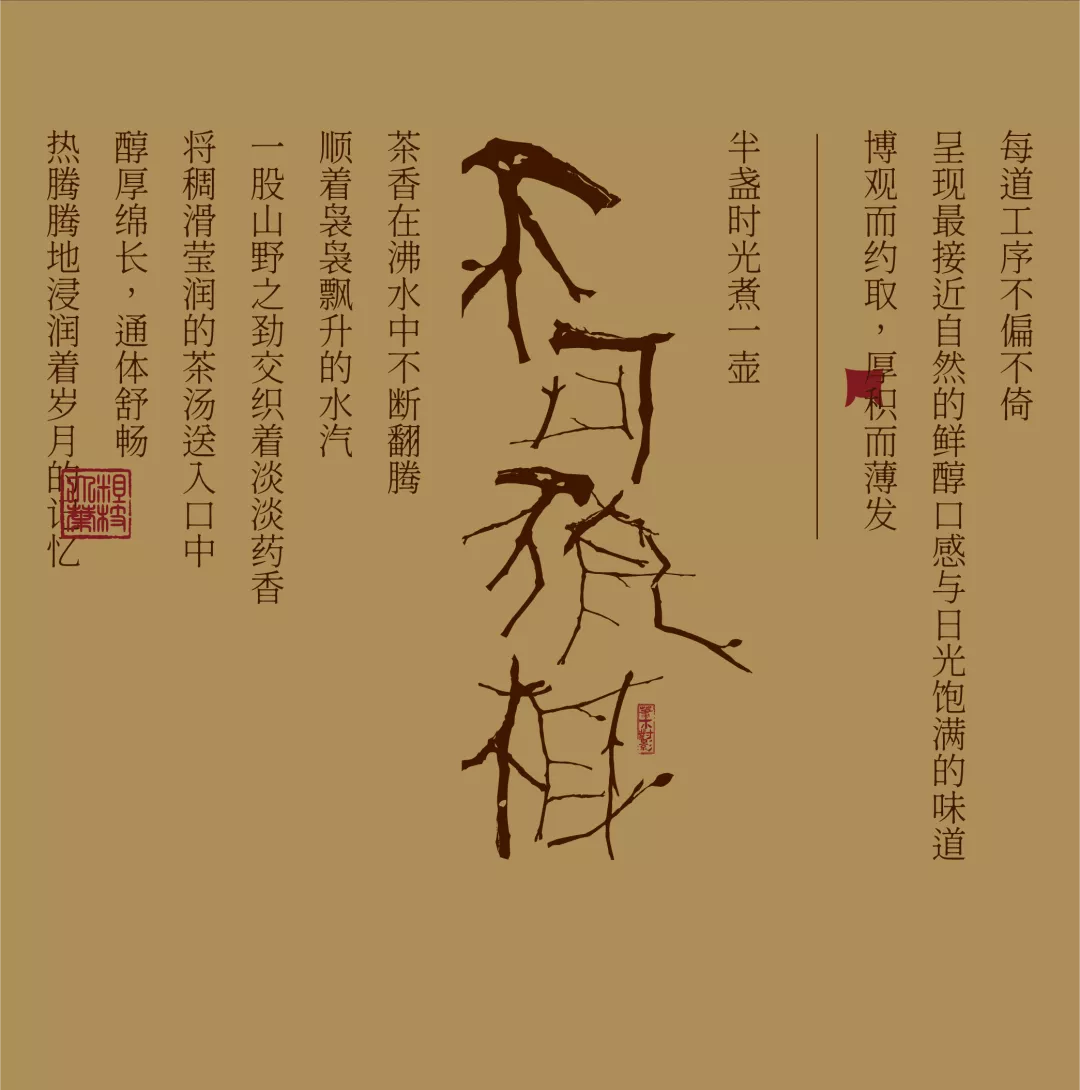 每道工序不偏不倚
呈现最接近自然的鲜醇口感与日光饱满的味道
博观而约取，厚积而薄发
半盏时光煮一壶
不可貌相
茶香在沸水中不断翻腾
顺着袅袅飘升的水汽
一股山野之劲交织着淡淡药香
将稠滑莹润的茶汤送入口中
醇厚绵长，通体舒畅
热腾腾地浸润着岁月的记忆